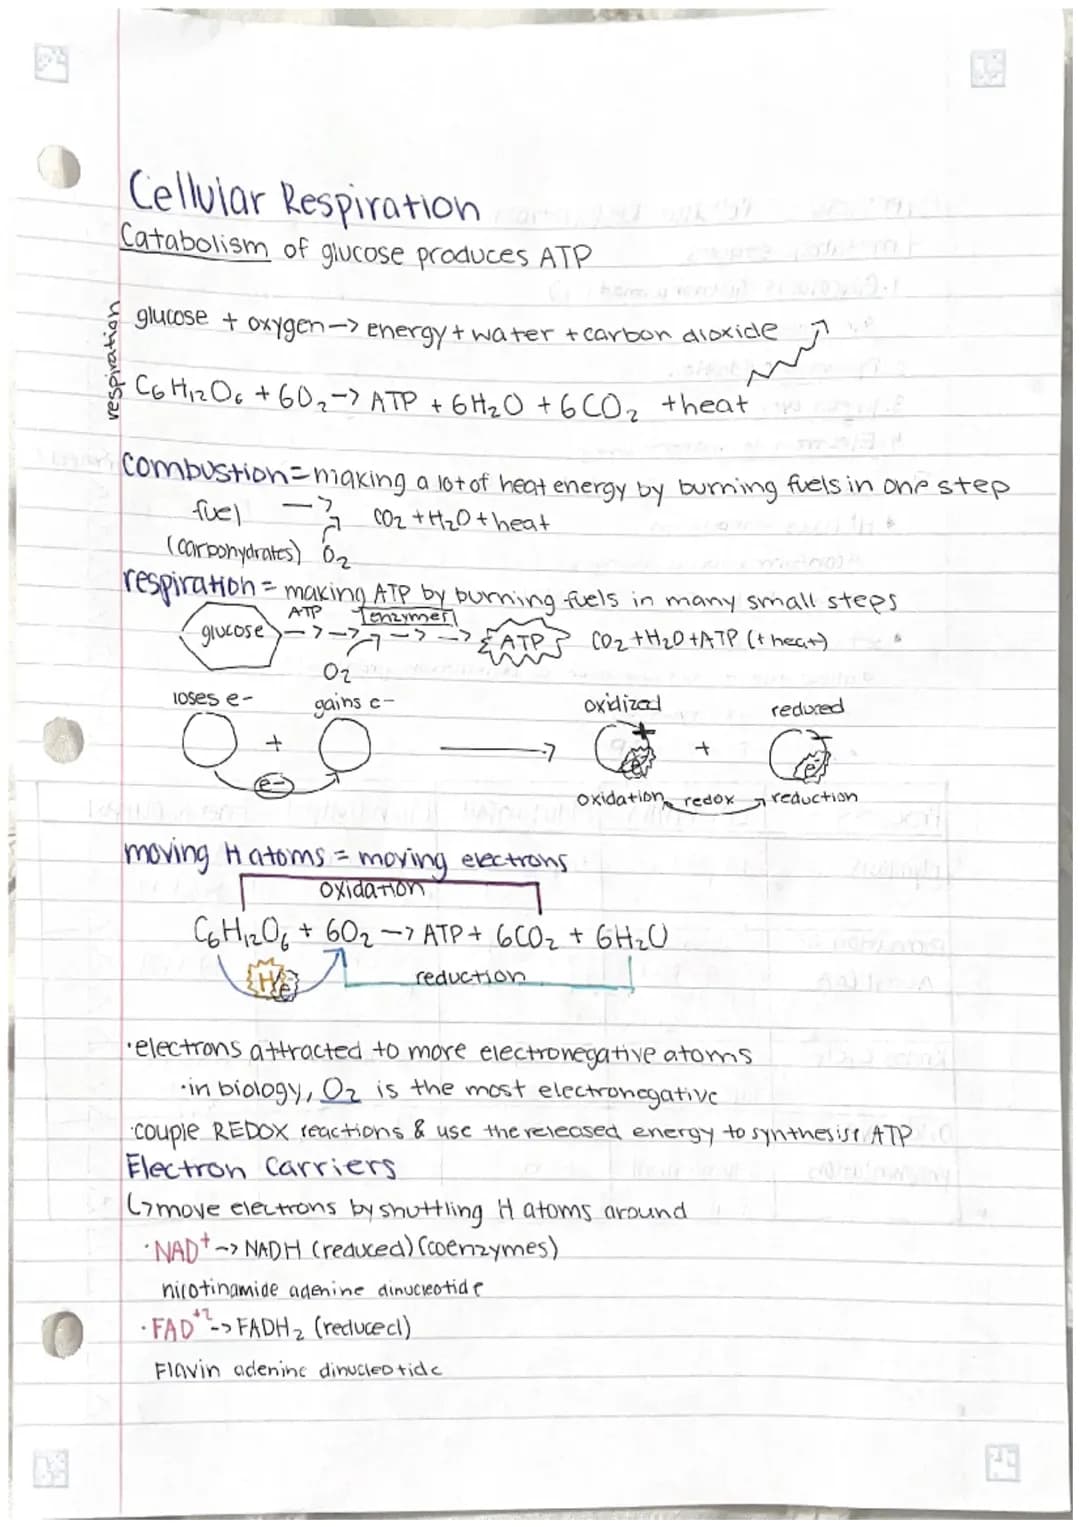 Cellular Respiration
Catabolism of glucose produces ATP
respiration
glucose + oxygen -> energy + water + carbon dioxide
C6H12O6 + 6O2 -> ATP + 6H2O + 6CO2 + heat
combustion = making a lot of heat energy by burning fuels in one step
fuel -> CO2 + H2O + heat
(carbohydrates) O2
respiration = making ATP by burning fuels in many small steps
ATP enzymes
glucose -> -> -> -> ATP CO2 + H2O + ATP (+ heat)
O2
loses e- gains e- oxidized reduced
+ -> + + -
e- e- e-
oxidation redox reduction
moving H atoms = moving electrons
oxidation
C6H12O6 + 6O2 -> ATP + 6CO2 + 6H2O
H e- reduction
·electrons attracted to more electronegative atoms
·in biology, O2 is the most electronegative
·couple REDOX reactions & use the released energy to synthesize ATP
Electron Carriers
↳move electrons by shuttling H atoms around
·NAD+ -> NADH (reduced) (coenzymes)
nicotinamide adenine dinucleotide
·FAD+2 -> FADH2 (reduced)
Flavin adenine dinucleotide